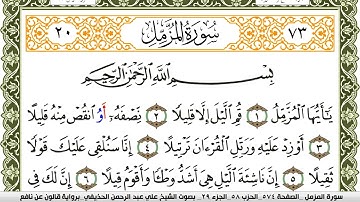 ٧٣ سُورَةُ الْمُزَّمِّلِ ٢٠
بِسْمِ اللَّهِ الرَّحْمَٰنِ الرَّحِيمِ
يَٰٓأَيُّهَا اَلْمُزَّمِّلُ ١ قُمِ اِلَّيْلَ إِلَّا قَلِيلًا ٢ نِّصْفَهُۥٓ أَوُ اُنقُصْ مِنْهُ قَلِيلًا
٣ أَوْ زِدْ عَلَيْهِ وَرَتِّلِ اِلْقُرْءَانَ تَرْتِيلًا ٤ إِنَّا سَنُلْقِي عَلَيْكَ قَوْلًا
ثَقِيلًا ٥ إِنَّ نَاشِئَةَ اَلَّيْلِ هِيَ أَشَدُّ وَطْـًٔا وَأَقْوَمُ قِيلًا ٦ إِنَّ لَكَ فِي
سورة المزمل _ الصفحة ٥٧٤ _ الحزب ٥٨ _ الجزء ٢٩ _ بصوت الشيخ علي عبد الرحمن الحذيفي _ برواية قالون عن نافع